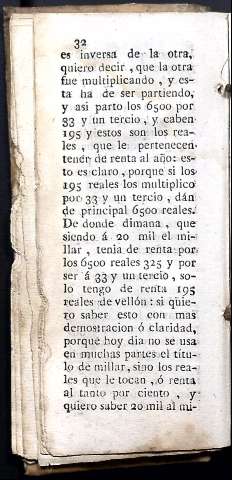 32
es inversa de la otra,
quiero decir, que la otra
fue multiplicando, y es-
ta ha de ser partiendo,
y asi parto los 6500 por
33 y un tercio, y caben
195 y estos son los rea-
les, que le pertenecen
tener de renta al año: es-
to es claro, porque si los
195 reales los multiplico
por 33 y un tercio, dán
de principal 6500 reales.
De donde dimana, que
siendo á 20 mil el mi-
llar, tenia de renta por
los 6500 reales 325 y por
ser á 33 y un tercio, so-
lo tengo de renta 195
reales de vellón: si quie-
ro saber esto con mas
demostracion ó claridad,
porque hoy dia no se usa
en muchas partes el titu-
lo de millar, sino los rea-
les que le tocan, ó renta
al tanto por ciento, y
quiero saber 20 mil al mi-